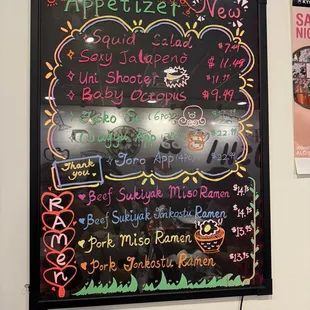 Appetizer New
Squid Salad $7.49
Sexy Jalapeño $11.49
Uni Shooter $11.99
Baby Octopus $9.99
Toro App
Thank
you
Ramen
Beef Sukiyak Miso Ramen $14.95
Beef Sukiyak Tonkostu Ramen $14.95
Pork Miso Ramen $13.95
Pork Tonkostu Ramen $13.95
SA
NI